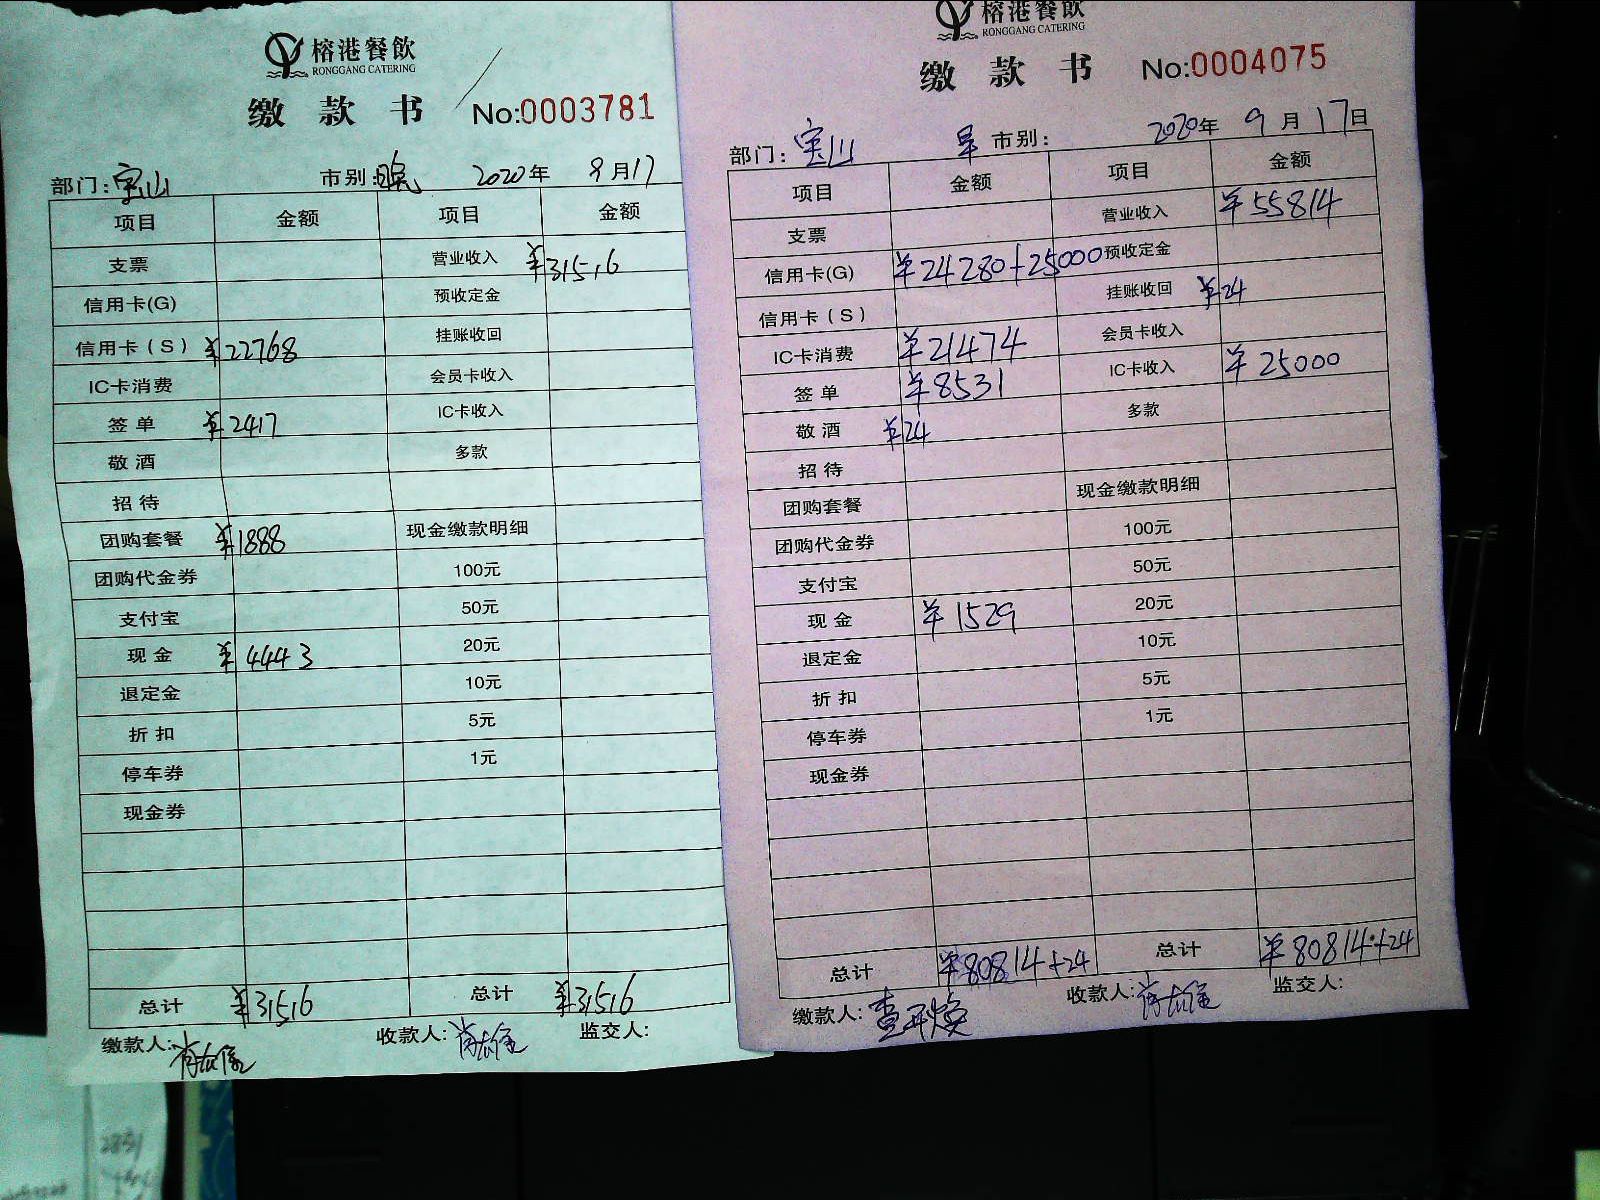 榕港餐飲
RONGGANG CATERING
缴款书 No:0003781
部门:宝山 市别:晚 2020年 9月17
项目 金额 项目 金额
支票 营业收入 ¥31516
信用卡(G) 预收定金
信用卡(S) ¥22768 挂账收回
IC卡消费 会员卡收入
签单 ¥2417 IC卡收入
敬酒 多款
招待
团购套餐 ¥1888 现金缴款明细
团购代金券 100元
支付宝 50元
现金 ¥4443 20元
退定金 10元
折扣 5元
停车券 1元
现金券
总计 ¥31516 总计 ¥31516
缴款人: 收款人: 监交人:
榕港餐飲
RONGGANG CATERING
缴款书 No:0004075
部门:宝山 早 市别: 2020年 9月17日
项目 金额 项目 金额
支票 营业收入 ¥55814
信用卡(G) ¥24280+25000 预收定金
信用卡(S) 挂账收回 ¥24
IC卡消费 ¥21474 会员卡收入
签单 ¥8531 IC卡收入 ¥25000
敬酒 ¥24 多款
招待
团购套餐 现金缴款明细
团购代金券 100元
支付宝 50元
现金 ¥1529 20元
退定金 10元
折扣 5元
停车券 1元
现金券
总计 ¥80814+24 总计 ¥80814+24
缴款人: 收款人: 监交人: